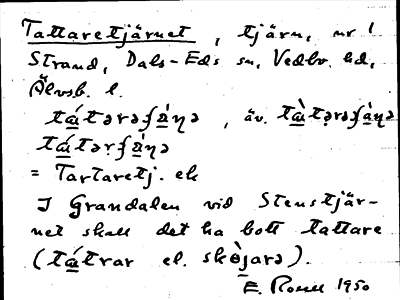 Tattaretjärnet, tjärn, nr 1
Strand, Dals-Eds sn, Vedbo hd,
Älvsb. l.
tátərəʃä̀ŋə, äv. tàtərəʃä̀ŋə
tátərʃä̀ŋə
= Tartaretj. ek
I Grandalen vid Stenstjär-
net skall det ha bott tattare
(tátrar el. skøjarə).
E. Rosell 1950